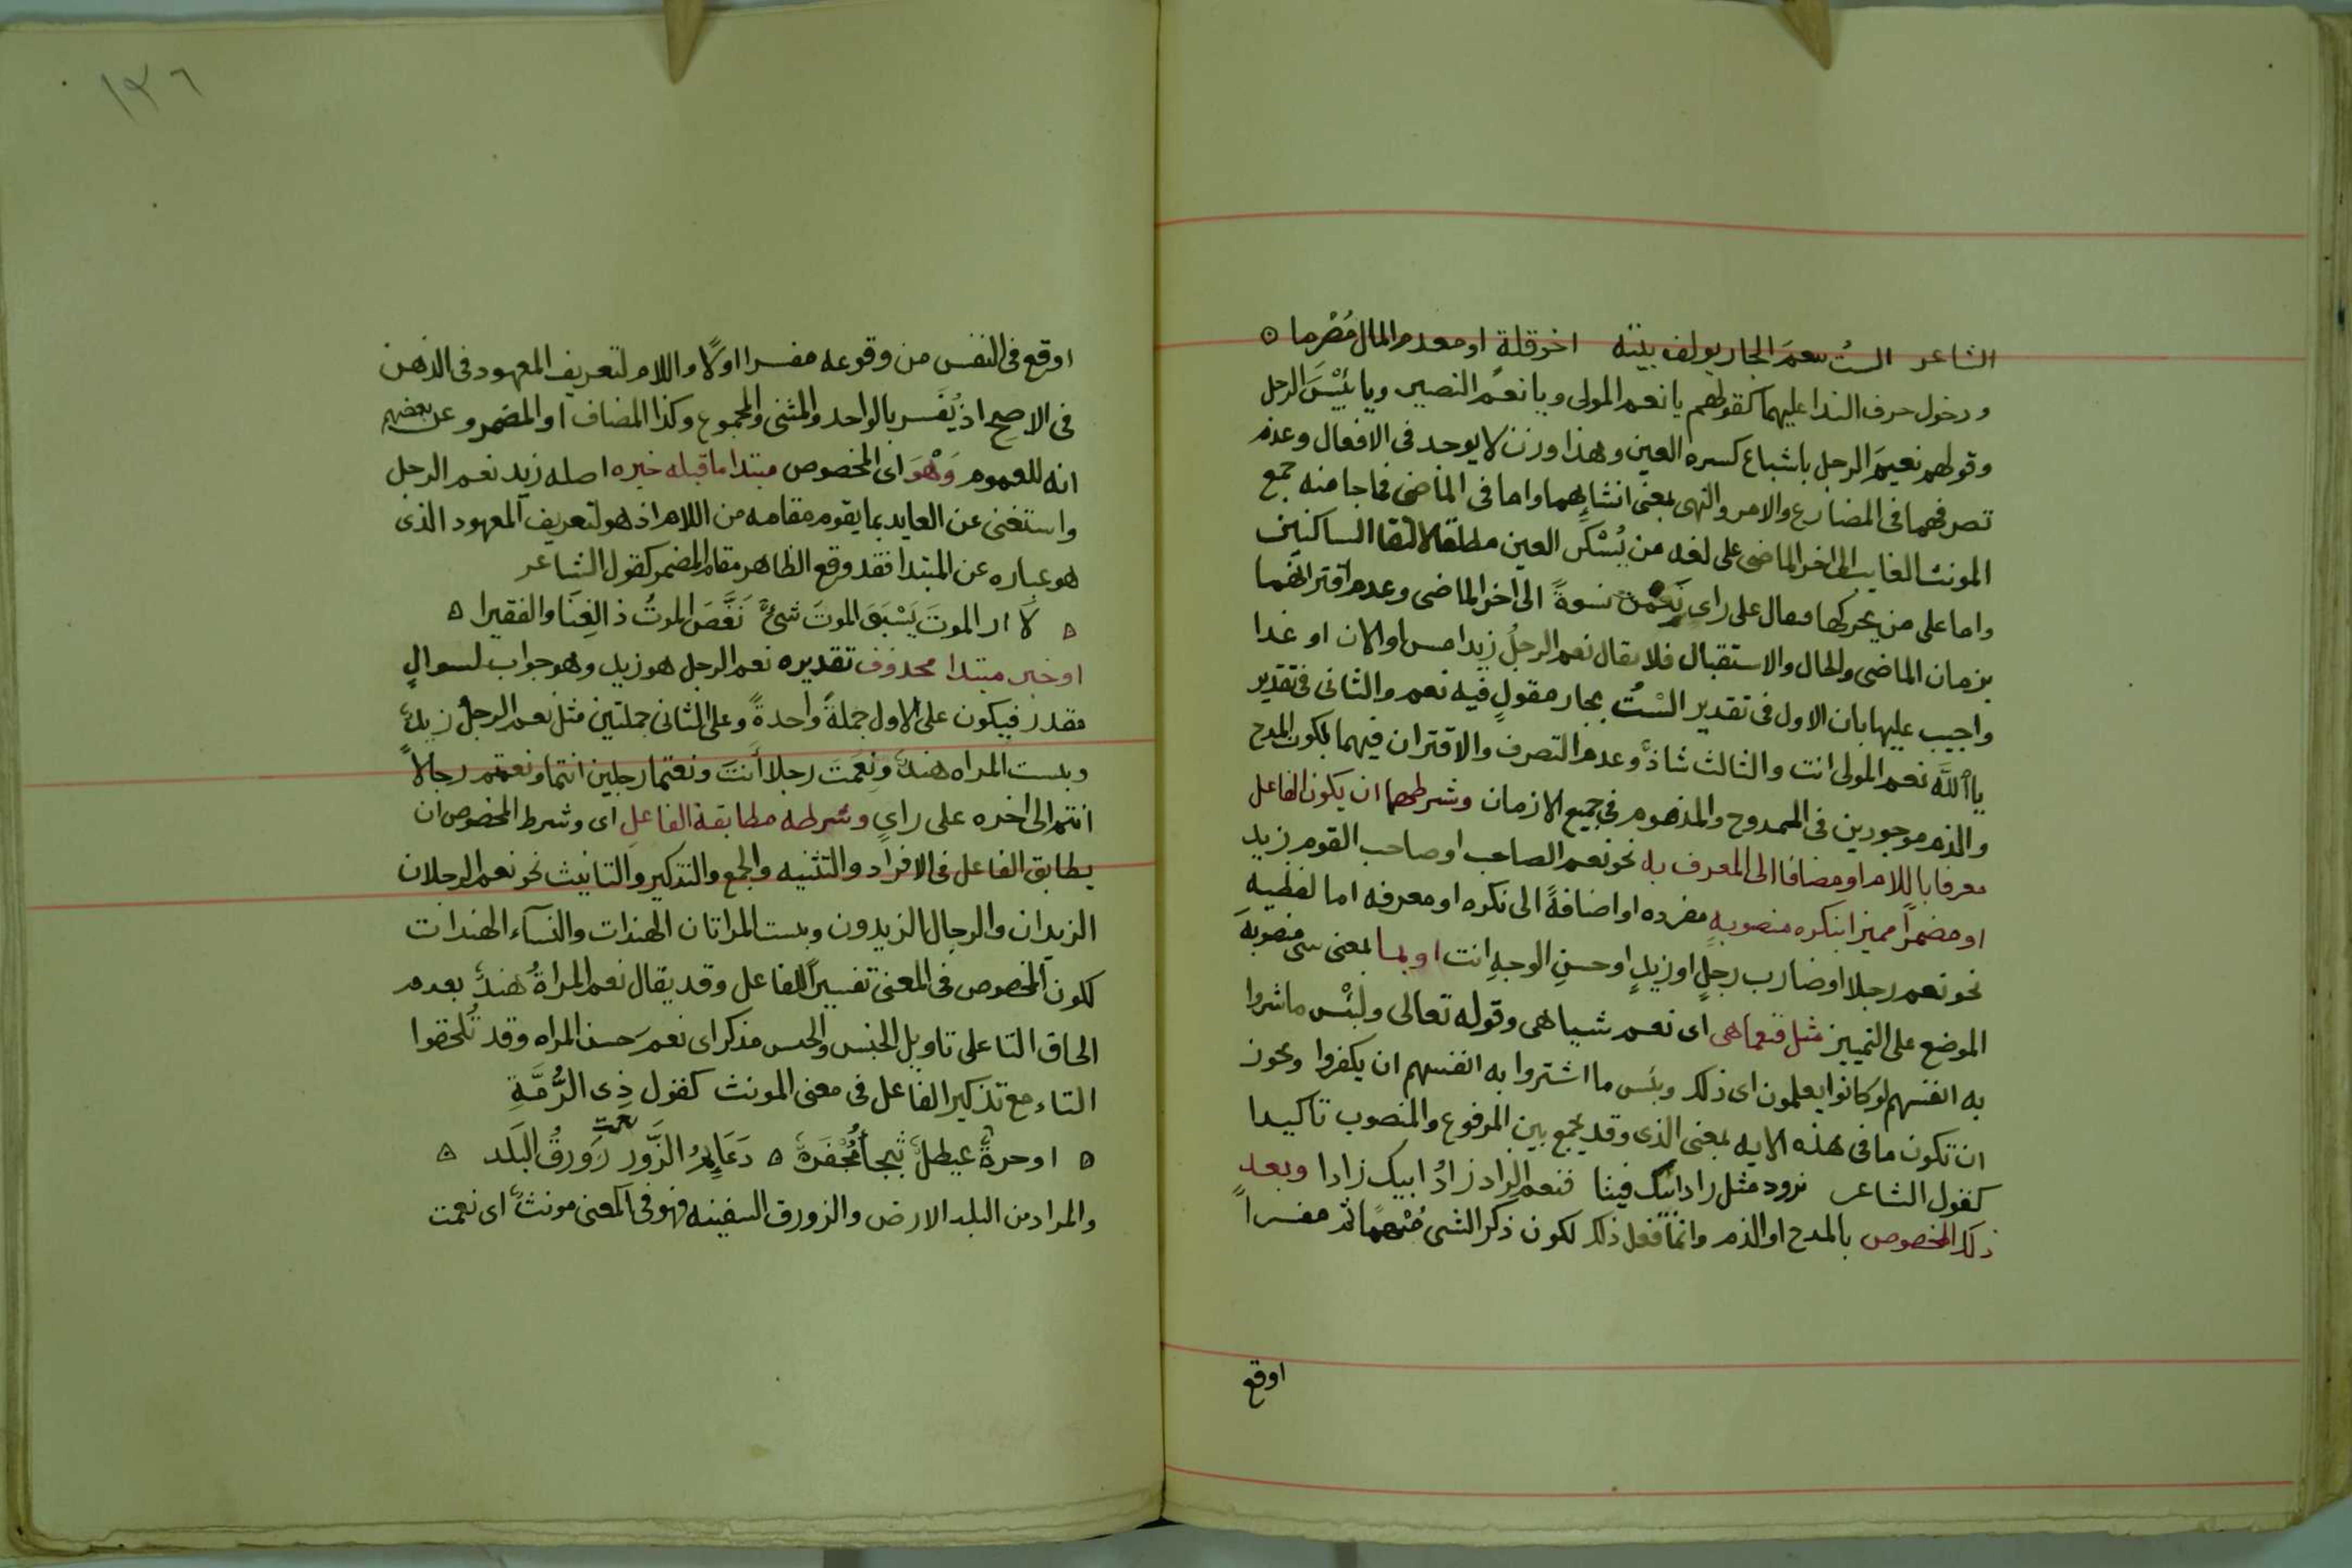 الشاعر الستُ بنعمَ الجار يولف بيته اخو قلةٍ او معدم المال مُصْرِما
ودخول حرف الندا عليهما كقولهم يا نعم المولى ويا نعم النصير ويا بَئيْسَ الرجل
وقولهم نعيمَ الرجل باشباع كسره العين وهذا وزن لا يوحد فى الافعال وعدم
تصرفهما فى المضارع والامر والنهى بمعنى انشايهما واما فى الماضى فما جا منه جمع
المونث الغايب الى اخر الماضى على لغه من يُسْكن العين مطلقا لالتقا الساكنين
واما على من يحركها فيقال على راى نعمن نسوةً الى اخر الماضى وعدم اقترانهما
بزمان الماضى والحال والاستقبال فلا يقال نعم الرجلُ زيد امس او الان او غدا
واجيب عليها بان الاول فى تقدير السْتُ بجار مقولٍ فيه نعم والثانى فى تقدير
يا اللّه نعم المولى انت والثالث شاذٌ وعدم التصرف والاقتران فيهما لكون المدح
والذم موجودين فى الممدوح والمذموم فى جميع الازمان وشرطهما ان يكون الفاعل
معرفا باللام او مضافا الى المعرف به نحو نعم الصاحب او صاحب القوم زيد
او مضمراً مميزا بنكره منصوبهٍ مفرده او اضافةً الى نكره او معرفه اما لفظيه
نحو نعم رجلا او ضارب رجلٍ او زيدٍ او حسنِ الوجهِ انت او بما بمعنى شى منصوبهَ
الموضع على التمييز مثل فنعما هى اى نعم شييا هى وقوله تعالى ولبئْس ما شروا
به انفسهم لو كانوا يعلمون اى ذلك وبئس ما اشتروا به انفسهم ان يكفروا ويجوز
ان تكون ما فى هذه الايه بمعنى الذى وقد يجمع بين المرفوع والمنصوب تاكيدا
كقول الشاعر تزود مثل زاد ابيك فينا فنعم الزاد زادُ ابيك زادا وبعد
ذلك المخصوص بالمدح او الذم وانما فعل ذلك لكون ذكر الشى مُبْهماً ثم مفسراً
اوقع
١٣٦
اوقع فى النفس من وقوعه مفسرا اولًا واللام لتعريف المعهود فى الذهن
فى الاصح اذ يُفسر بالواحد والمثنى والمجموع وكذا المضاف او المضمر وعن بعضهم
انه للعموم وَهْوَ اى المخصوص مبتدا ما قبله خبره اصله زيد نعم الرجل
واستغنى عن العايد بما يقوم مقامه من اللام اذ هو لتعريف المعهود الذى
هو عباره عن المبتدا فقد وقع الظاهر مقام المضمر كقول الشاعر
لا ارى الموتَ يَسْبَق الموتَ شىءٌ نَغَّصَ الموتُ ذا الغِنَا والفقيرا
او خبر مبتدا محذوف تقديره نعم الرجل هو زيد وهو جواب لسوالٍ
مقدر فيكون على الاول جملةً واحدةً وعلى الثانى جملتين مثل نعم الرجلُ زيدٌ
وبست المراه هندٌ ونعمتَ رجلا أنتَ ونعتما رجلين انتما ونعمتم رجالاً
انتم الى اخره على راىٍ وشرطه مطابقة الفاعلِ اى وشرط المخصوص ان
يطابق الفاعل فى الافراد والتثنيه والجمع والتذكير والتانيث نحو نعم الرجلان
الزيدان والرجال الزيدون وبست المراتان الهندات والنسآء الهندات
لكون المخصوص فى المعنى تفسيراً للفاعل وقد يقال نعم المراةُ هندٌ بعدم
الحاق التا على تاويل الجنس والجنس مذكر اى نعم حسن المراه وقد تُلحقوا
التاء مع تذكير الفاعل فى معنى المونث كقول ذِى الرُّمَّةِ
او حرةٌ عيطلٌ ثبجاُ مُجْفَرةٌ دَعَايِمُ الزَّور نعمت زَورقُ البَلَد
والمراد من البلد الارض والزورق السفينه فهو فى المعنى مونثٌ اى نعمت